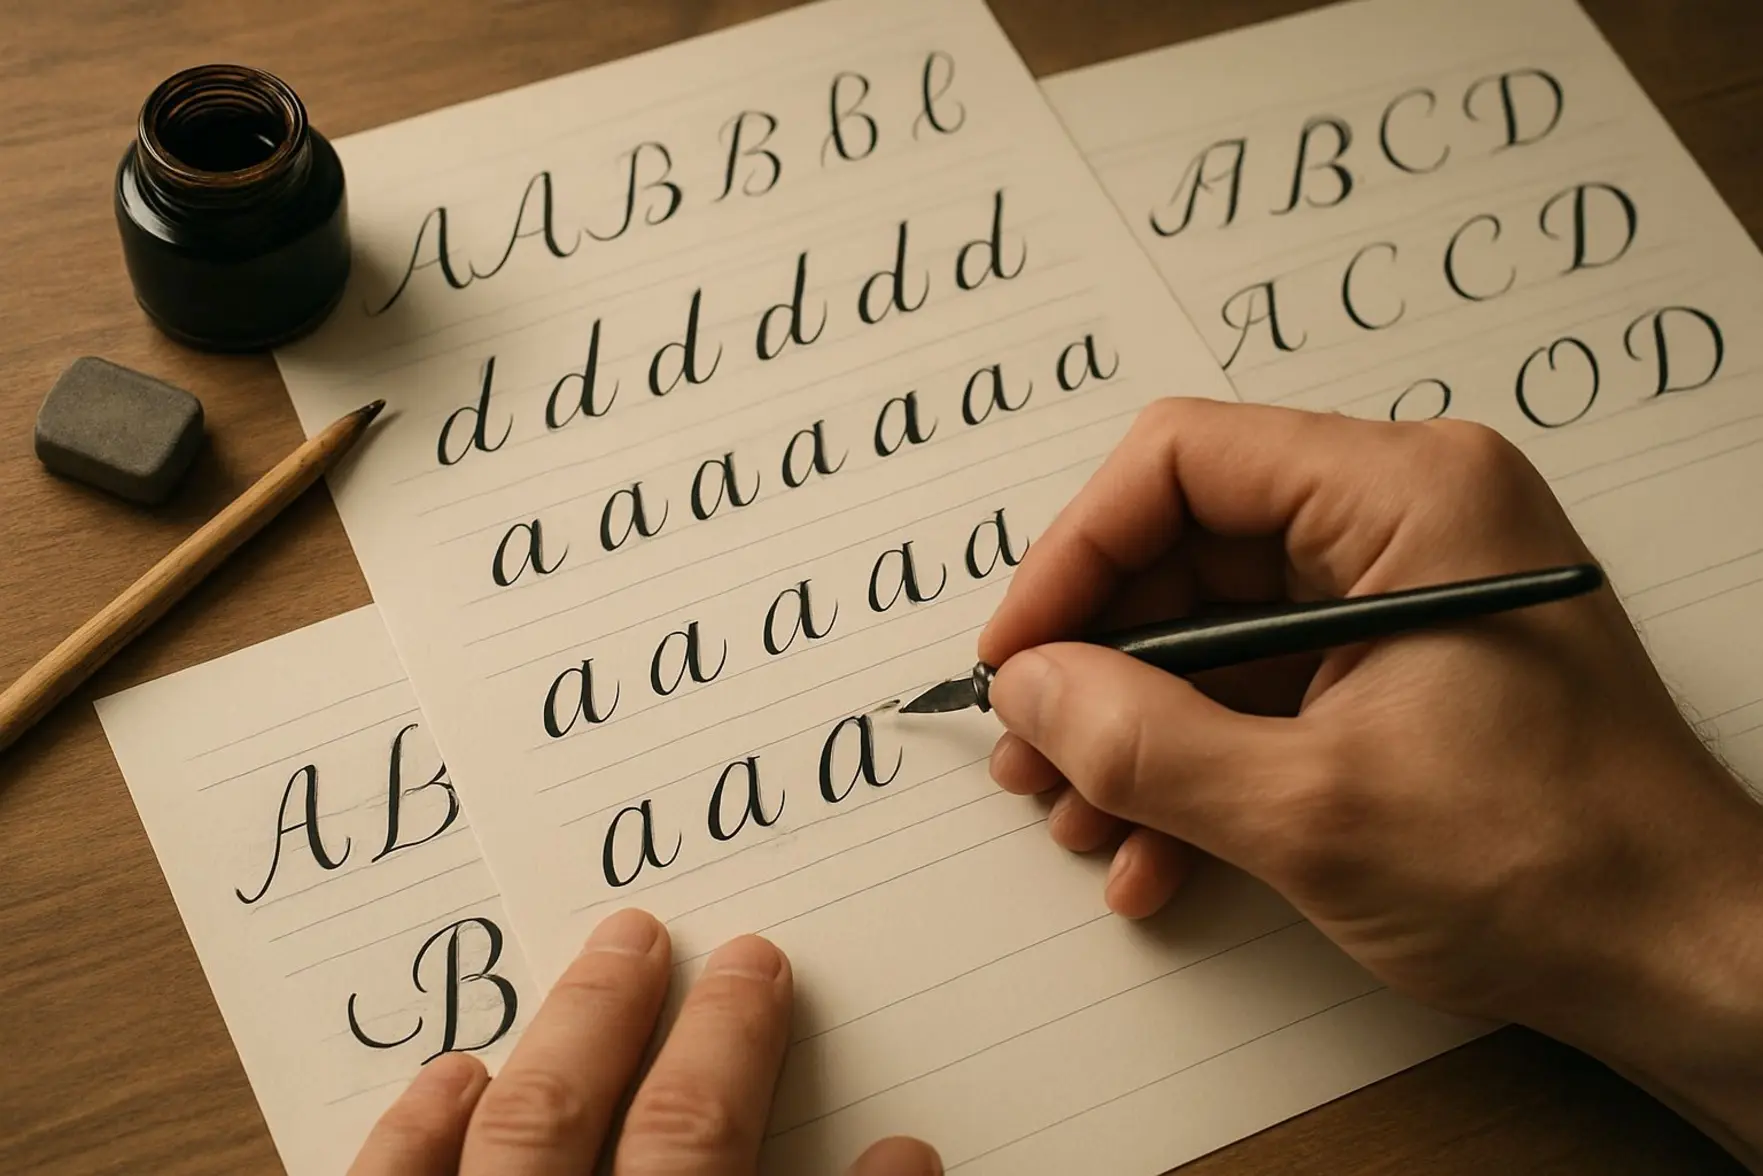 AABBBl
dddddd
aaaaaaa
aaaaa
aaa
ABCD
ACCD
OD
AB
B